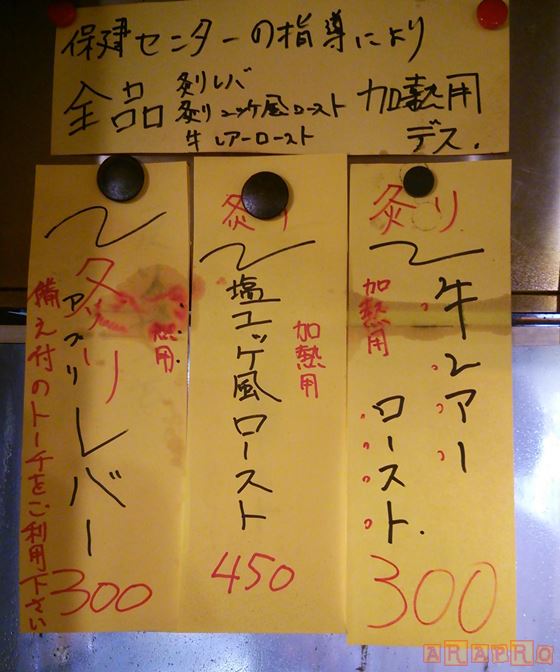 保健センターの指導により
全品
炙りレバ
炙りユッケ風ロースト
牛レアーロースト
加熱用
デス.
炙り
牛レアー
ロースト.
加熱用
300
炙り
塩ユッケ風ロースト
加熱用
450
炙りレバー
アブリ
熱用.
備え付のトーチをご利用下さい
300
ARAPRO